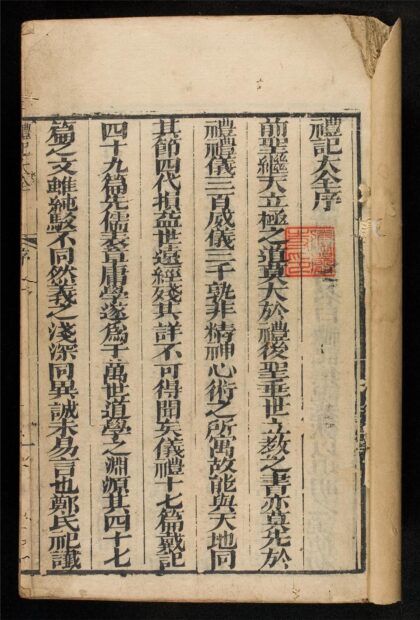 禮記大全序
前聖繼天立極之道莫大於禮後聖垂世立教之書亦莫先於
禮禮儀三百威儀三千孰非精神心術之所寓故能與天地同
其節四代損益世遠經殘其詳不可得聞矣儀禮十七篇戴記
四十九篇先儒表章庸學遂爲千萬世道學之淵源其四十七
篇之文雖純駁不同然義之淺深同異誠未易言也鄭氏祀讖